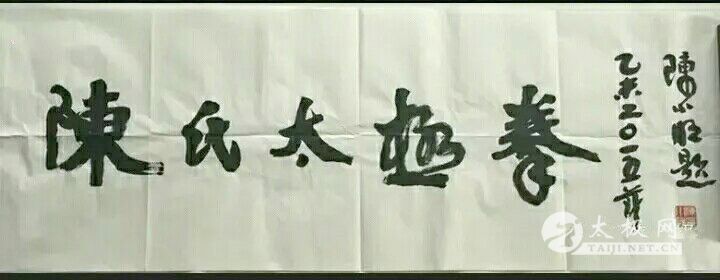 陳氏太極拳
陳小旺題
乙未二〇一五
太极网
TAIJI.NET.CN